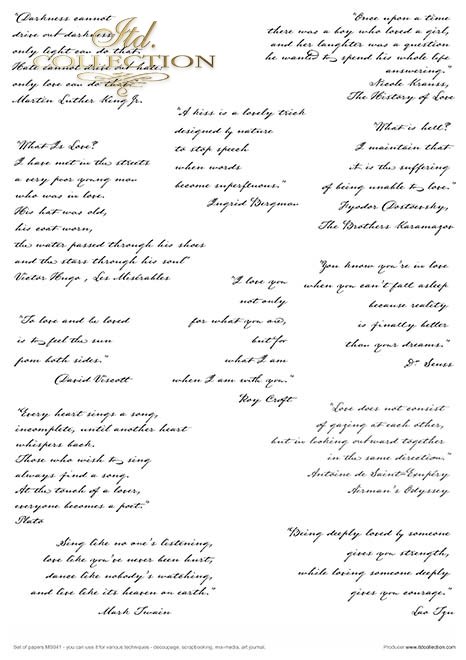 "Darkness cannot
drive out darkness;
only light can do that.
Hate cannot drive out hate;
only love can do that."
Martin Luther King Jr.
Itd.
COLLECTION
"Once upon a time
there was a boy who loved a girl,
and her laughter was a question
he wanted to spend his whole life
answering."
Nicole Krauss,
The History of Love
"A kiss is a lovely trick
designed by nature
to stop speech
when words
become superfluous."
Ingrid Bergman
"What is hell?
I maintain that
it is the suffering
of being unable to love."
Fyodor Dostoevsky,
The Brothers Karamazov
"What Is Love?
I have met in the streets
a very poor young man
who was in love.
His hat was old,
his coat worn,
the water passed through his shoes
and the stars through his soul"
Victor Hugo , Les Misérables
"I love you
not only
for what you are,
but for
what I am
when I am with you."
Roy Croft
"You know you're in love
when you can't fall asleep
because reality
is finally better
than your dreams."
Dr. Seuss
"To love and be loved
is to feel the sun
from both sides."
David Viscott
"Love does not consist
of gazing at each other,
but in looking outward together
in the same direction."
Antoine de Saint-Exupéry
Airman's Odyssey
"Every heart sings a song,
incomplete, until another heart
whispers back.
Those who wish to sing
always find a song.
At the touch of a lover,
everyone becomes a poet."
Plato
Sing like no one's listening,
love like you've never been hurt,
dance like nobody's watching,
and live like its heaven on earth."
Mark Twain
"Being deeply loved by someone
gives you strength,
while loving someone deeply
gives you courage."
Lao Tzu
Set of papers MS041 - you can use it for various techniques - decoupage, scrapbooking, mix-media, art journal.
Producer www.itdcollection.com